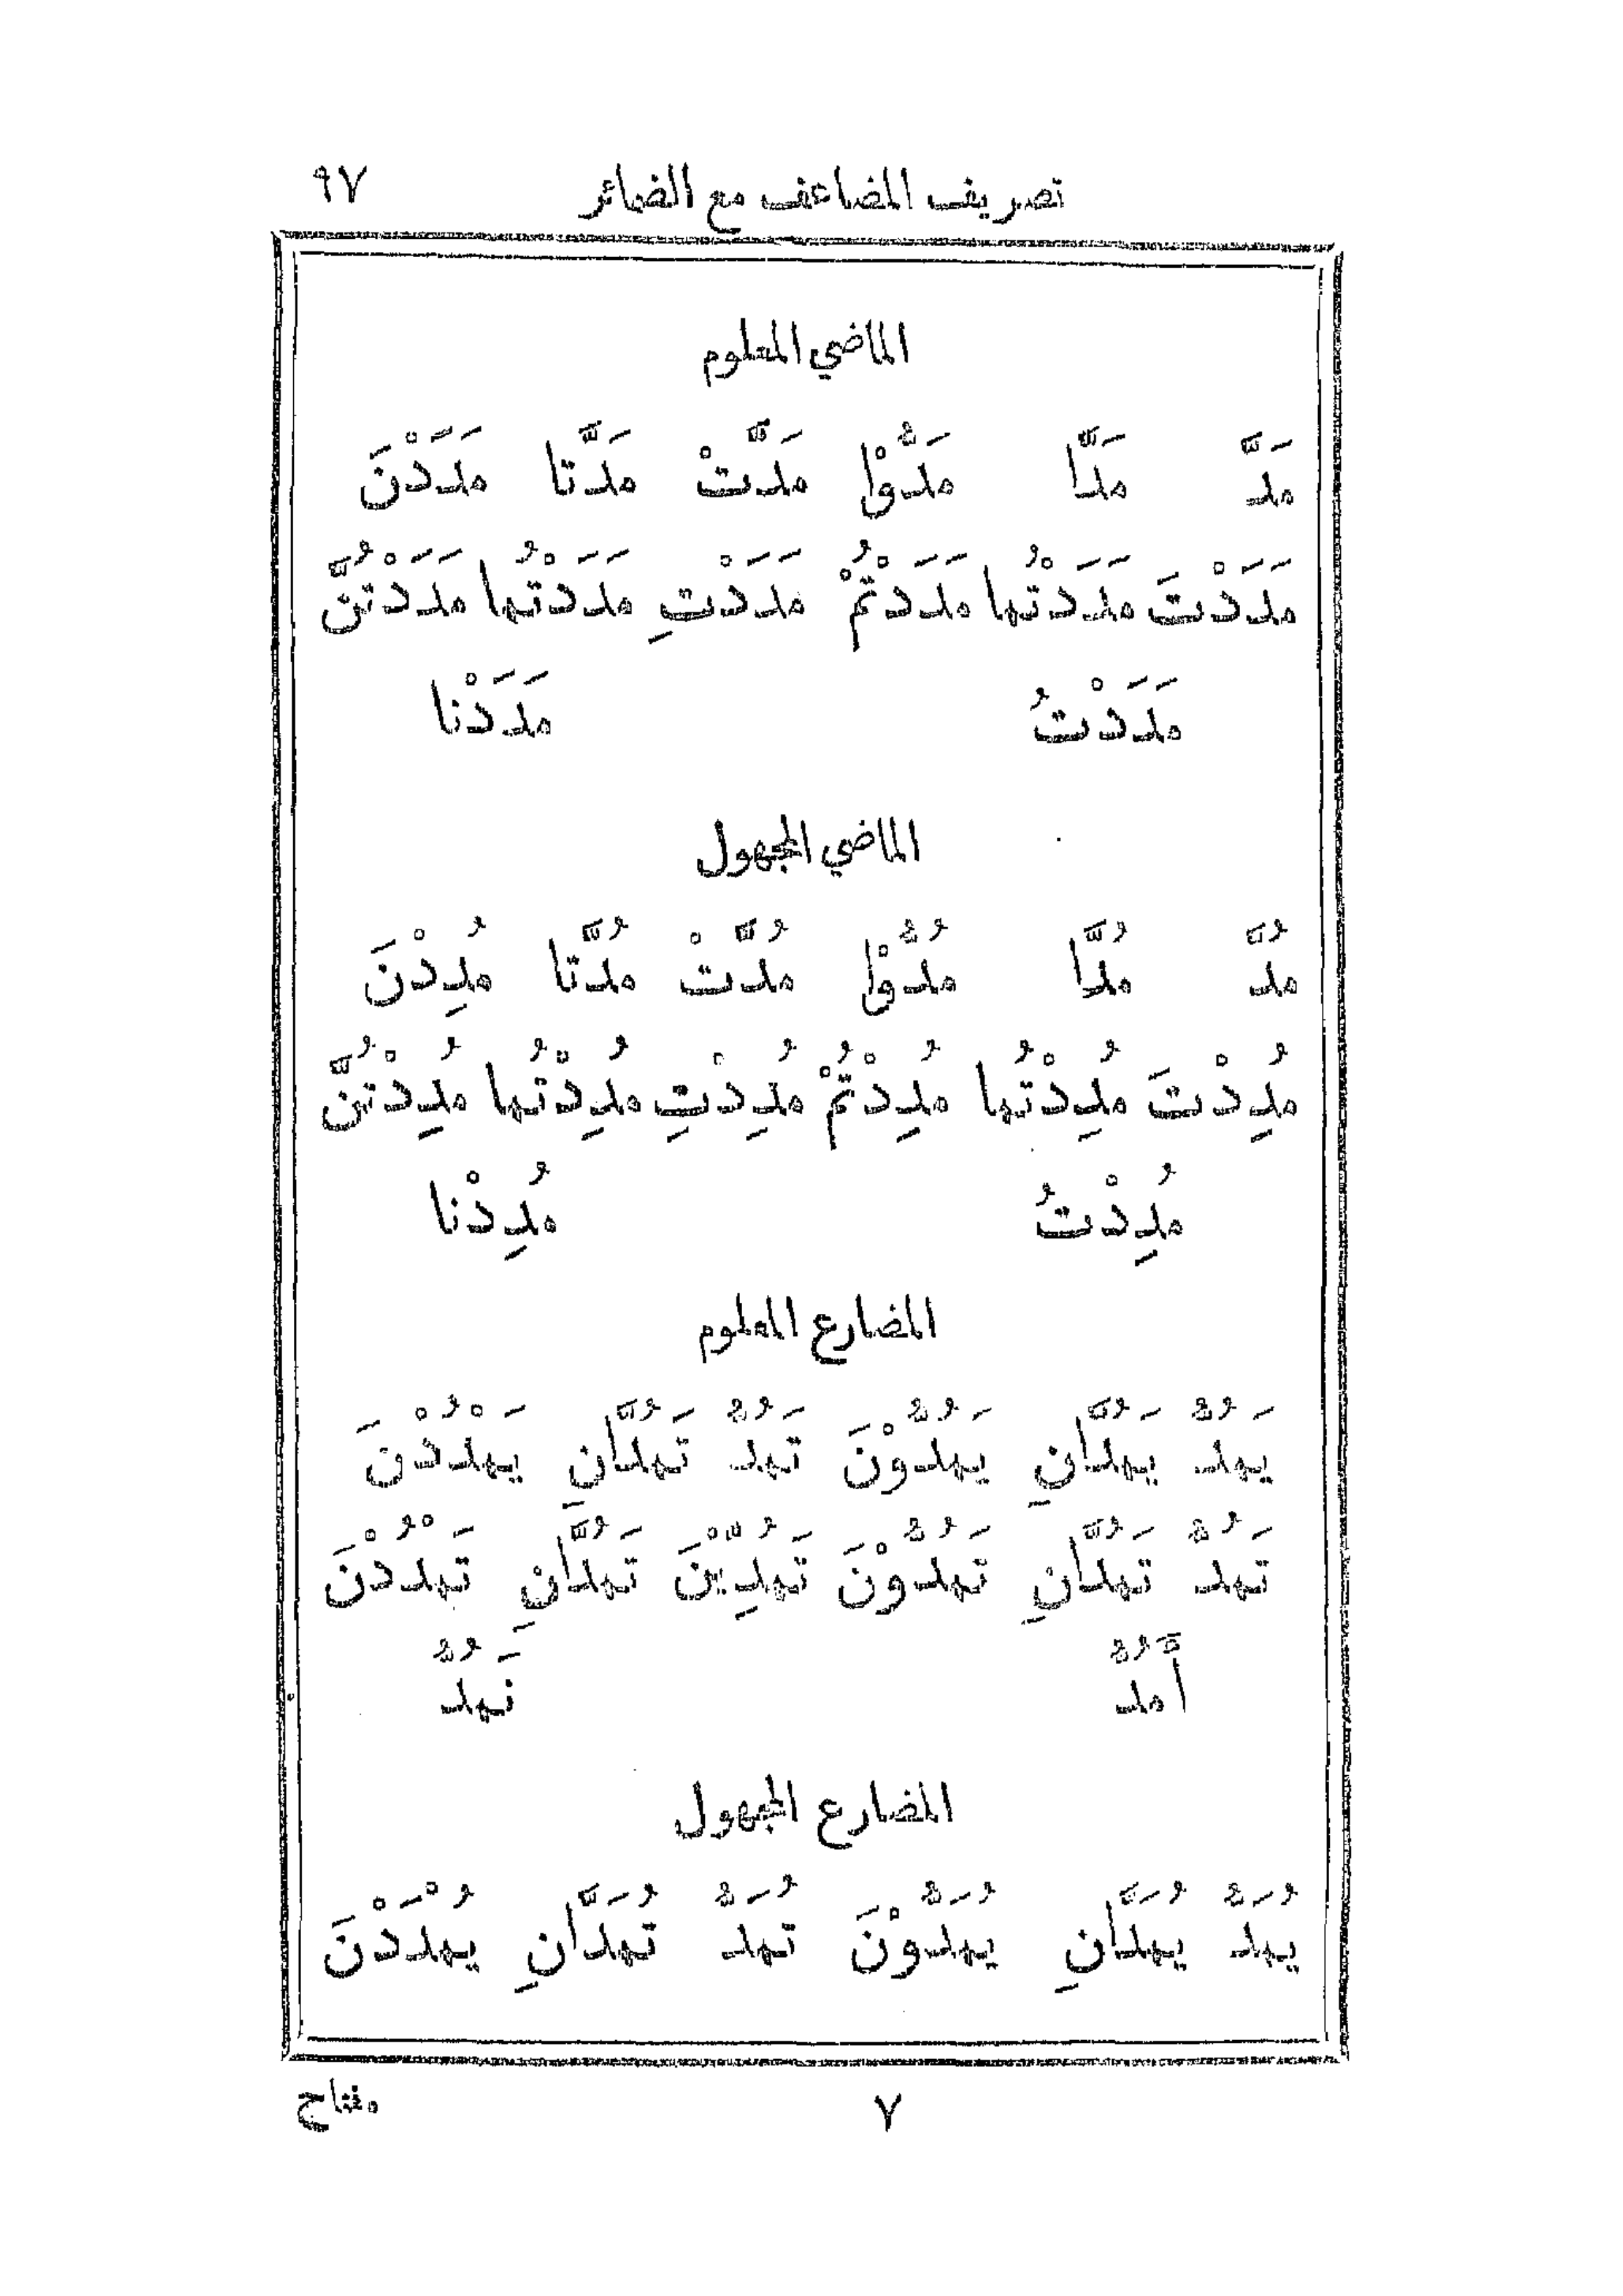 تصريف المضاعف مع الضمائر ٩٧
الماضي المعلوم
مَدَّ مَدَّا مَدُّوْا مَدَّتْ مَدَّتا مَدَدْنَ
مَدَدْتَ مَدَدْتُما مَدَدْتُمْ مَدَدْتِ مَدَدْتُما مَدَدْتُنَّ
مَدَدْتُ مَدَدْنا
الماضي المجهول
مُدَّ مُدَّا مُدُّوْا مُدَّتْ مُدَّتا مُدِدْنَ
مُدِدْتَ مُدِدْتُما مُدِدْتُمْ مُدِدْتِ مُدِدْتُما مُدِدْتُنَّ
مُدِدْتُ مُدِدْنا
المضارع المعلوم
يَمُدُّ يَمُدَّانِ يَمُدُّوْنَ تَمُدُّ تَمُدَّانِ يَمْدُدْنَ
تَمُدُّ تَمُدَّانِ تَمُدُّوْنَ تَمُدِّيْنَ تَمُدَّانِ تَمْدُدْنَ
أَمُدُّ نَمُدُّ
المضارع المجهول
يُمَدُّ يُمَدَّانِ يُمَدُّوْنَ تُمَدُّ تُمَدَّانِ يُمْدَدْنَ
٧ مفتاح